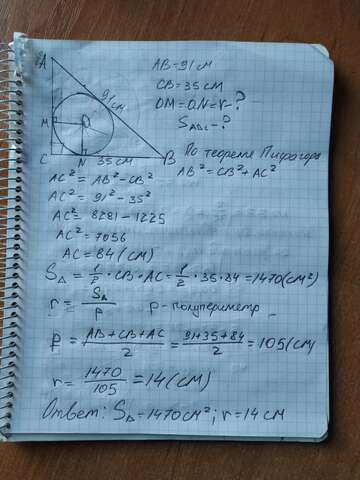 A
91 см
M
O
C
N
35 см
B
AB=91 см
CB=35 см
OM=ON=r-?
SABC-?
По теореме Пифагора
AB²=CB²+AC²
AC²=AB²-CB²
AC²=91²-35²
AC²=8281-1225
AC²=7056
AC=84(см)
S△=1/2·CB·AC=1/2·35·84=1470(см²)
r=S△/p p-полупериметр
p=(AB+CB+AC)/2=(91+35+84)/2=105(см
r=1470/105=14(см)
Ответ: S△=1470см²; r=14см